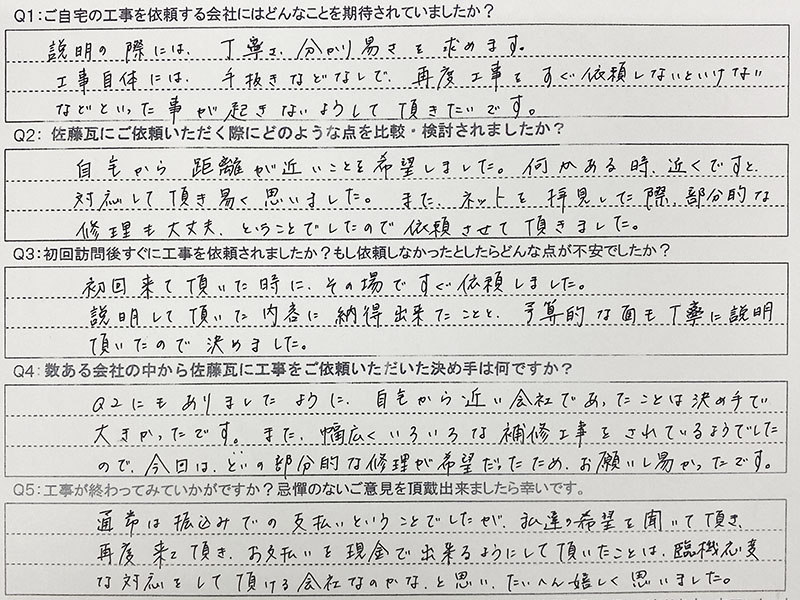 Q1:ご自宅の工事を依頼する会社にはどんなことを期待されていましたか？
説明の際には、丁寧さ、分かり易さを求めます。
工事自体には、手抜きなどなしで、再度工事をすぐ依頼しないといけない
などといった事が起きないようして頂きたいです。
Q2: 佐藤瓦にご依頼いただく際にどのような点を比較・検討されましたか？
自宅から距離が近いことを希望しました。何かある時、近くですと、
対応して頂き易く思いました。また、ネットを拝見した際、部分的な
修理も大丈夫、ということでしたので依頼させて頂きました。
Q3:初回訪問後すぐに工事を依頼されましたか？もし依頼しなかったとしたらどんな点が不安でしたか？
初回来て頂いた時に、その場ですぐ依頼しました。
説明して頂いた内容に納得出来たことと、予算的な面も丁寧に説明
頂いたので決めました。
Q4: 数ある会社の中から佐藤瓦に工事をご依頼いただいた決め手は何ですか？
Q2にもありましたように、自宅から近い会社であったことは決め手で
大きかったです。また、幅広くいろいろな補修工事をされているようでした
ので、今回は、といの部分的な修理が希望だったため、お願いし易かったです。
Q5:工事が終わってみていかがですか？忌憚のないご意見を頂戴出来ましたら幸いです。
通常は振込みでの支払いということでしたが、私達の希望を聞いて頂き、
再度来て頂き、お支払いを現金で出来るようにして頂いたことは、臨機応変
な対応をして頂ける会社なのかな、と思い、たいへん嬉しく思いました。